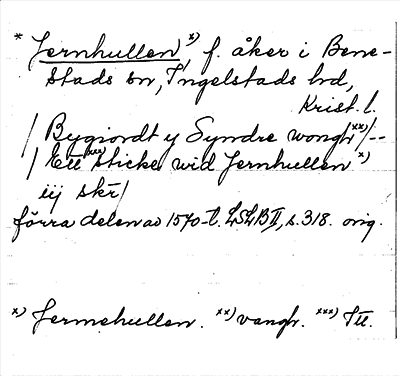 * Jernhullen x) f. åker i Bene-
stads sn, Ingelstads hd,
Krist. l.
/ Bygiordt y Syndre wongh xx) /--
/ Ett xxx) sticke wid Jernhullen x)
iij skr/
förra delen av 1570-t. LSLB II, s. 318. orig.
x) Jermehullen. xx) vangh. xxx) Itt.